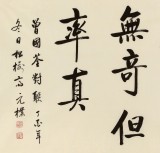 無奇但
率真
曾國荃對聯丁亥年
冬日松梅高元樸